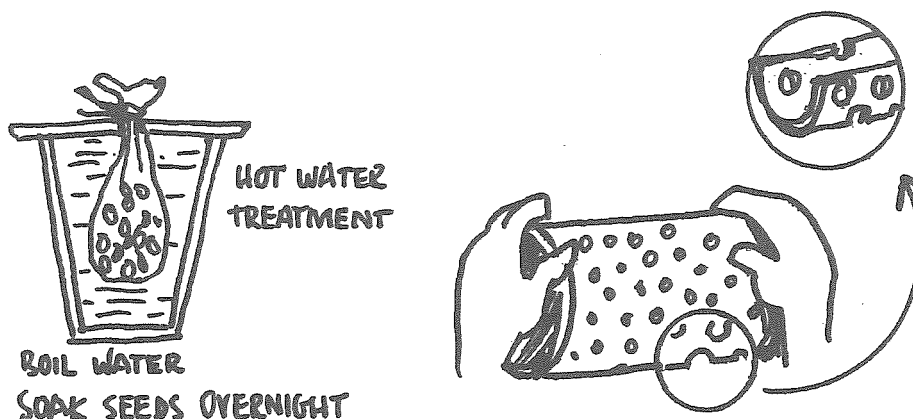 HOT WATER
TREATMENT
BOIL WATER
SOAK SEEDS OVERNIGHT